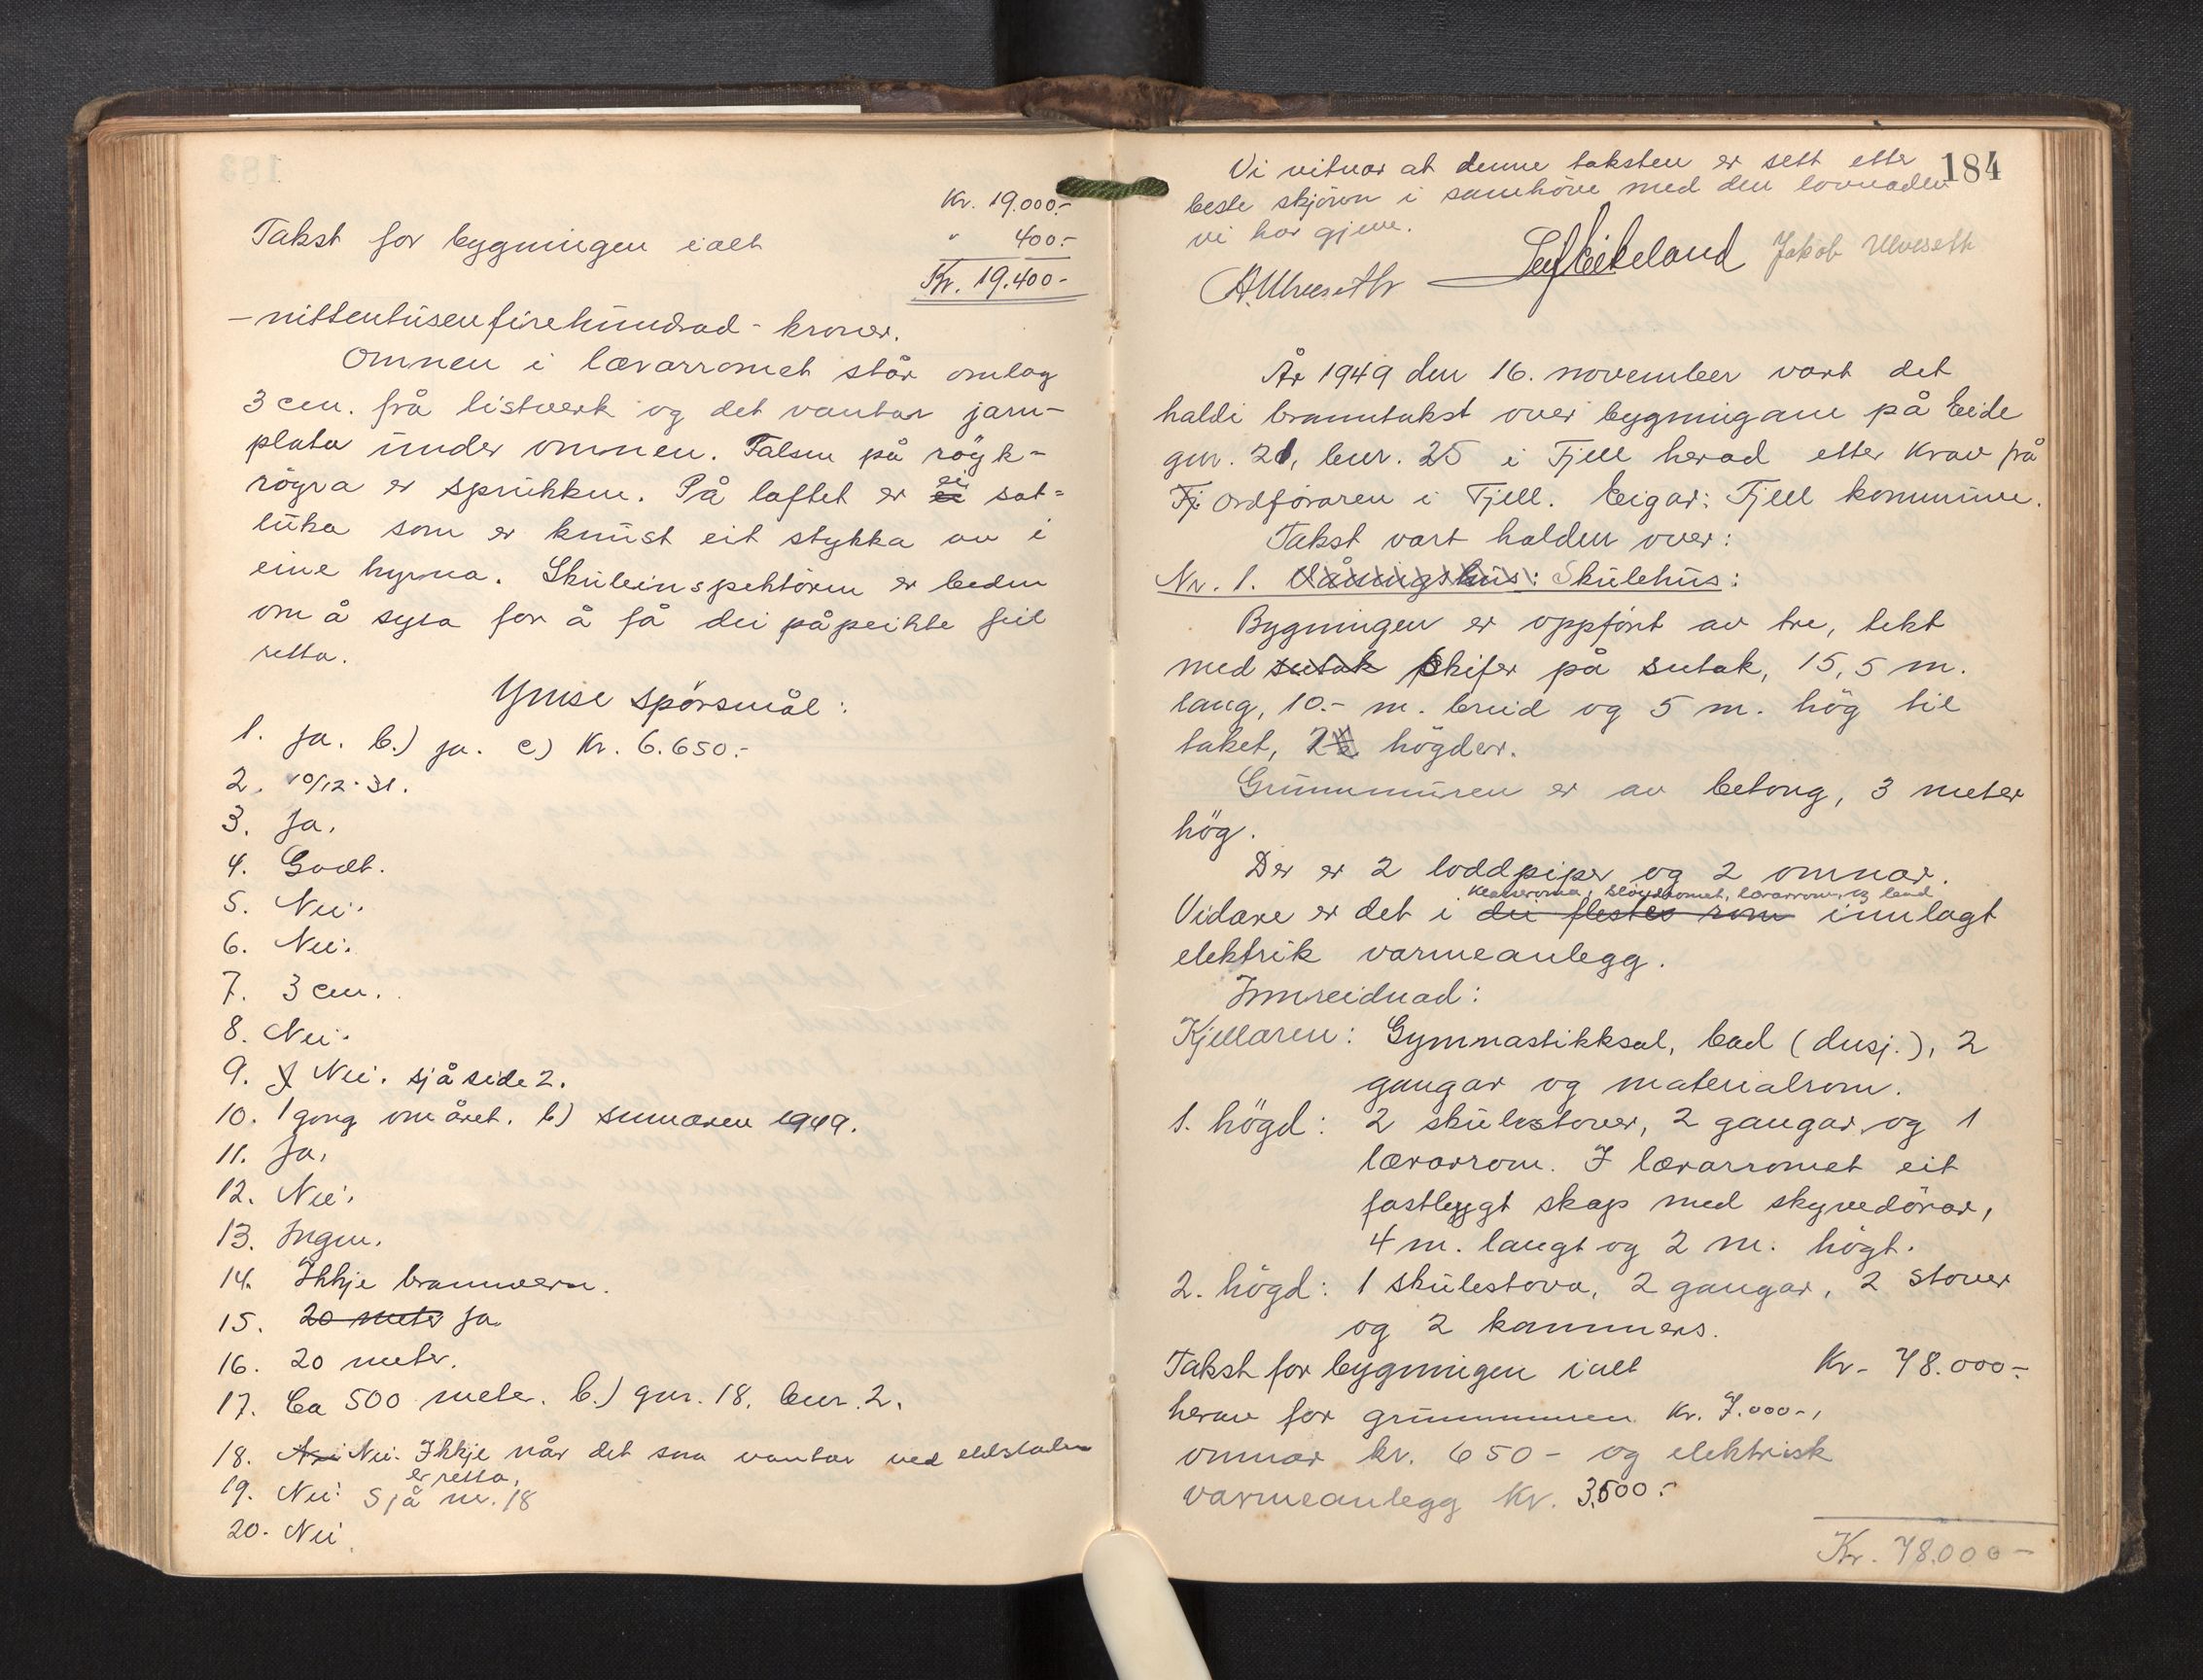 Kr. 19.000.-
Takst for bygningen i alt " 400.-
Kr. 19.400.-
- nittentusenfirehundrad - kroner.
Omnen i lærarromet står omlag
3 cm. frå listverk og det vantar jarn-
plata under omnen. Falsen på röyk-
rögra er sprukken. På loftet er ei sot-
luka som er knust eit stykka av i
eine hyrna. Skuleinspektören er beden
om å syta for å få dei påpeikte feil
retta.
Ymse spörsmål:
1. Ja. b.) ja. c) Kr. 6.650.-
2. 10/12-31.
3. Ja.
4. Godt.
5. Nei.
6. Nei.
7. 3 cm.
8. Nei.
9. Nei. sjå side 2.
10. 1 gong om året. b) sumaren 1949.
11. Ja.
12. Nei.
13. Ingen.
14. Ikkje brannvern.
15. 20 meter Ja.
16. 20 meter.
17. Ca 500 meter. b.) gnr. 18. bnr. 2.
18. Nei. Ikkje når det som vantar ved eldstaden
er retta.
19. Nei. Sjå nr. 18
20. Nei.
184
Vi vitnar at denne taksten er sett etter
beste skjönn i samhöve med den lovnaden
vi har gjeve.
A. Ulveseth Leif Eikeland Jakob Ulveseth
År 1949 den 16. november vart det
haldi branntakst over bygningane på Eide
gnr. 21, bnr. 25 i Fjell herad etter krav frå
Fj. Ordföraren i Fjell. Eigar: Fjell kommune.
Takst vart halden over:
Nr. 1. Våningshus: Skulehus:
Bygningen er oppfört av tre, tekt
med sutak skifer på sutak, 15,5 m.
lang, 10.- m. breid og 5 m. hög til
taket, 2 högder.
Grunnmuren er av betong, 3 meter
hög.
Der er 2 loddpiper og 2 omnar.
Klasseroma, slöydromet, lærarrom, og bad
Vidare er det i dei flestes rom innlagt
elektrik varmeanlegg.
Innreidnad:
Kjellaren: Gymnastikksal, bad (dusj.), 2
gangar og materialrom.
1. högd: 2 skulestover, 2 gangar og 1
lærarrom. I lærarromet eit
fastbygt skap med skyvedörar,
4 m. langt og 2 m. högt.
2. högd: 1 skulestova, 2 gangar, 2 stover
og 2 kammers.
Takst for bygningen i alt Kr. 78.000.-
herav for grunnmuren Kr. 7.000-,
omnar kr. 650- og elektrisk
varmeanlegg Kr. 3.500.-
Kr. 78.000-